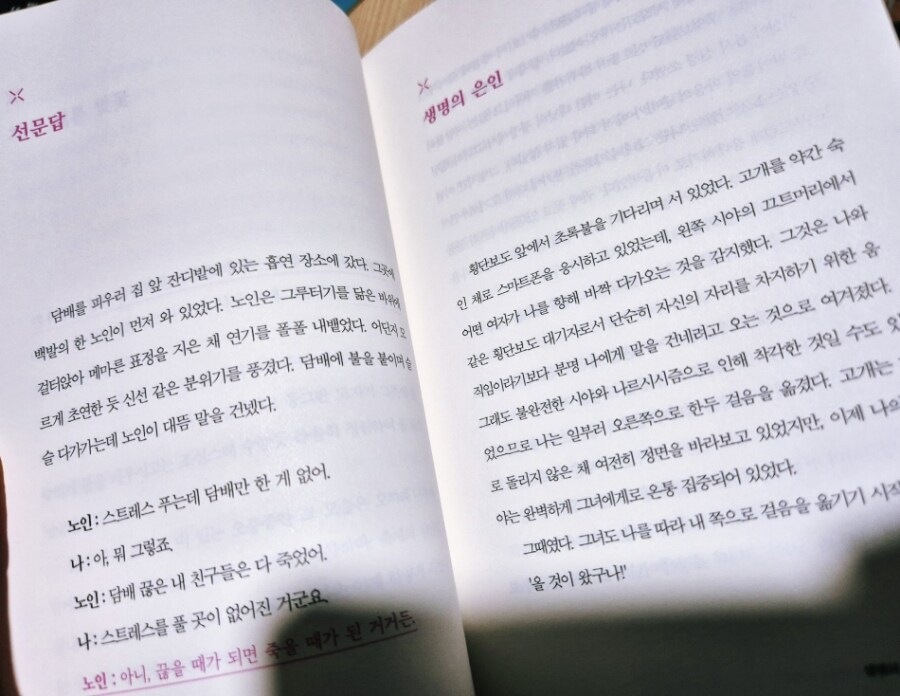 선문답
담배를 피우러 집 앞 잔디밭에 있는 흡연 장소에 갔다. 그곳에
백발의 한 노인이 먼저 와 있었다. 노인은 그루터기를 닮은 바위에
걸터앉아 메마른 표정을 지은 채 연기를 폴폴 내뱉었다. 어딘지 모
르게 초연한 듯 신선 같은 분위기를 풍겼다. 담배에 불을 붙이며 슬
슬 다가가는데 노인이 대뜸 말을 건넸다.
노인 : 스트레스 푸는데 담배만 한 게 없어.
나 : 아, 뭐 그렇죠.
노인 : 담배 끊은 내 친구들은 다 죽었어.
나 : 스트레스를 풀 곳이 없어진 거군요.
노인 : 아니, 끊을 때가 되면 죽을 때가 된 거거든.
생명의 은인
횡단보도 앞에서 초록불을 기다리며 서 있었다. 고개를 약간 숙
인 채로 스마트폰을 응시하고 있었는데, 왼쪽 시야의 끄트머리에서
어떤 여자가 나를 향해 바짝 다가오는 것을 감지했다. 그것은 나와
같은 횡단보도 대기자로서 단순히 자신의 자리를 차지하기 위한 움
직임이라기보다 분명 나에게 말을 건네려고 오는 것으로 여겨졌다.
그래도 불완전한 시야와 나르시시즘으로 인해 착각한 것일 수도 있
었으므로 나는 일부러 오른쪽으로 한두 걸음을 옮겼다. 고개는
로 돌리지 않은 채 여전히 정면을 바라보고 있었지만, 이제 나의
야는 완벽하게 그녀에게로 온통 집중되어 있었다.
그때였다. 그녀도 나를 따라 내 쪽으로 걸음을 옮기기 시작
'올 것이 왔구나!'